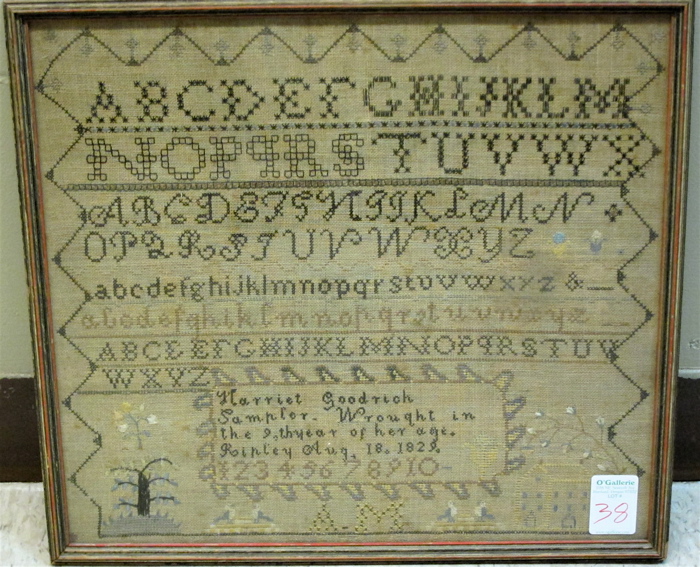 ABCDEFGHIJKLM
NOPQRSTUVWX
ABCDEFGHIJKLMN
OPQRSTUVWXYZ
abcdefghijklmnopqrstuvwxyz &
abcdefghiklmnopqrstuvwxyz
ABCDEFGHIJKLMNOPQRSTUV
WXYZ
Harriet Goodrich
Sampler. Wrought in
the 9,thyear of her age.
Ripley Aug, 18. 1829.
12345678910
A-M
O'Gallerie
38